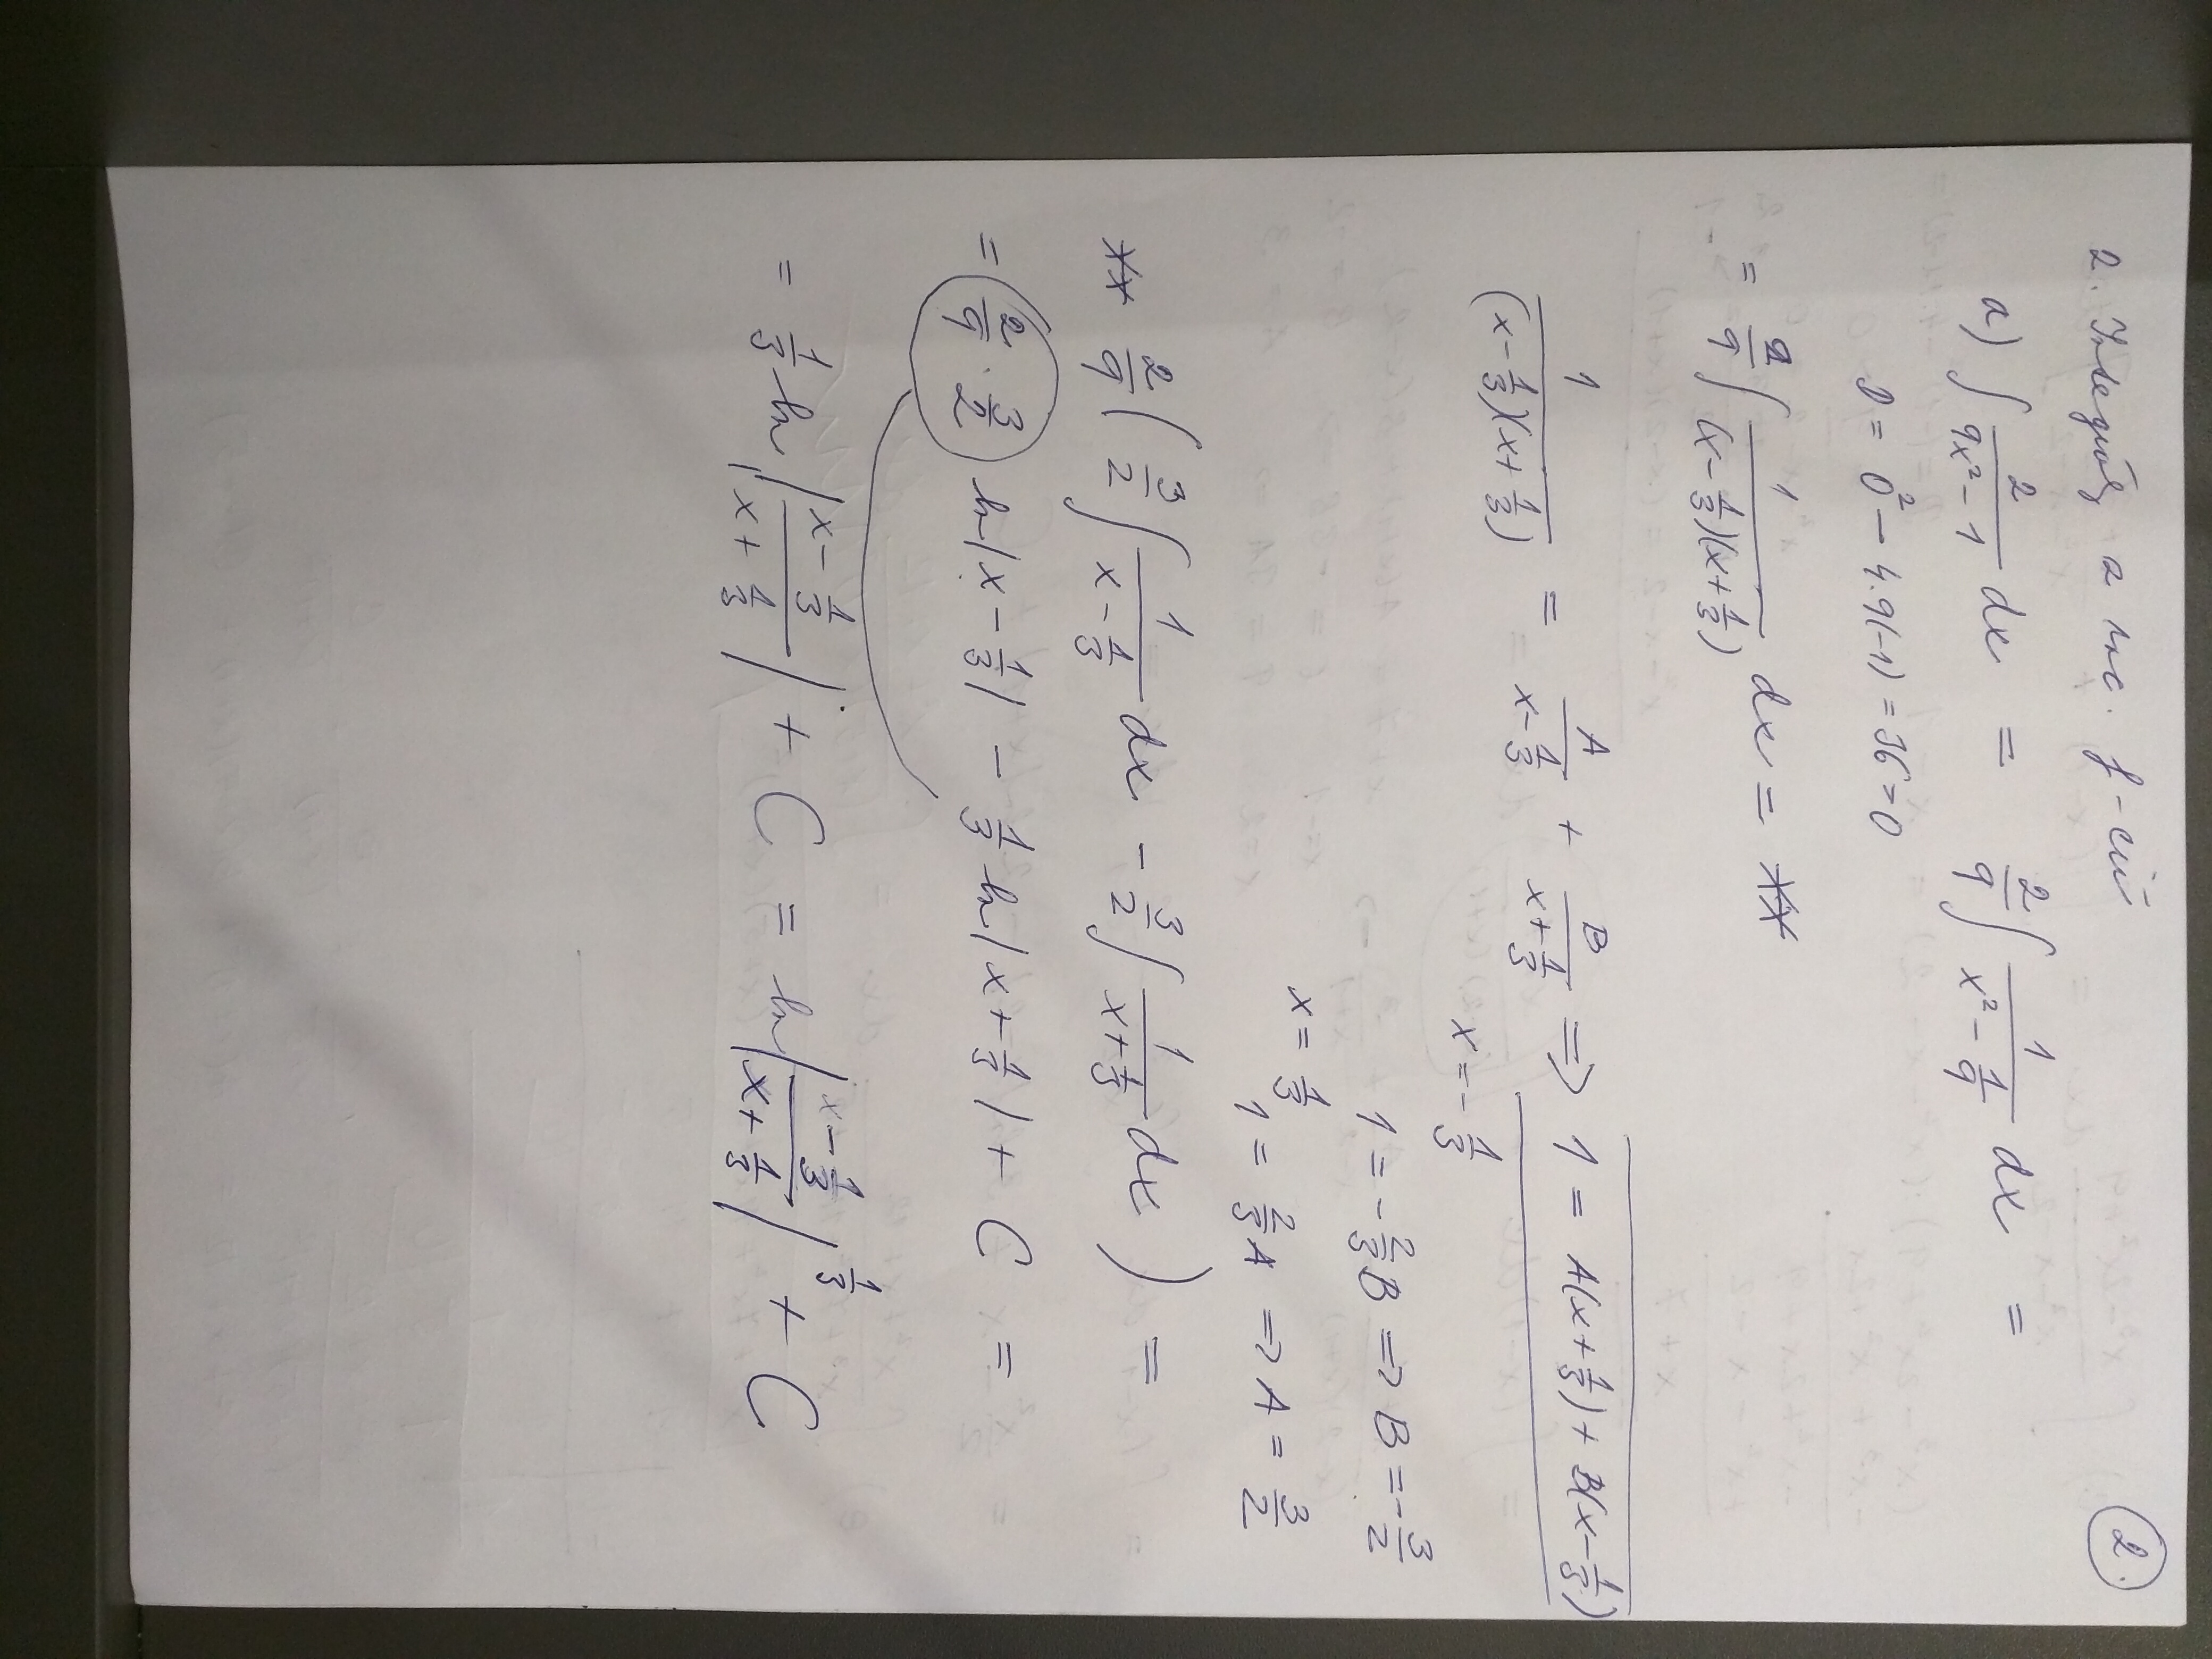 2. Integrály z rac. f-cií
2.
a) ∫ 2/(9x² - 1) dx = 2/9 ∫ 1/(x² - 1/9) dx =
D = 0² - 4.9(-1) = 36 > 0
= 2/9 ∫ 1/((x - 1/3)(x + 1/3)) dx = **
1/((x - 1/3)(x + 1/3)) = A/(x - 1/3) + B/(x + 1/3) => 1 = A(x + 1/3) + B(x - 1/3)
x = - 1/3
1 = - 2/3 B => B = - 3/2
x = 1/3
1 = 2/3 A => A = 3/2
** 2/9 ( 3/2 ∫ 1/(x - 1/3) dx - 3/2 ∫ 1/(x + 1/3) dx ) =
= 2/9 · 3/2 ln|x - 1/3| - 1/3 ln|x + 1/3| + C =
= 1/3 ln |(x - 1/3)/(x + 1/3)| + C = ln |(x - 1/3)/(x + 1/3)|^(1/3) + C